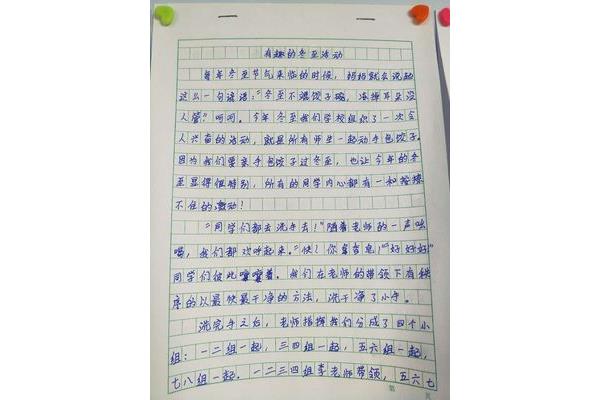 有趣的冬至活动
每年冬至节气来临的时候，妈妈就会说起
这么一句谚语：“冬至不端饺子碗，冻掉耳朵没
人管。”呵呵。今年冬至我们学校组织了一次令
人兴奋的活动，就是所有师生一起动手包饺子。
因为我们要亲手包饺子过冬至，也让今年的冬
至显得很特别，所有的同学内心都有一种按捺
不住的激动！
“同学们都去洗手去！”随着老师的一声吆
喝，我们都欢呼起来。“快！你拿香皂！”“好好好”
同学们彼此嚷嚷着。我们在老师的带领下有秩
序的以最快最干净的方法，洗干净了小手。
洗完手之后，老师指挥我们分成了四个小
组：一二组一起，三四组一起，五六组一起，
七八组一起。一二三四组李老师带领，五六七
第 页